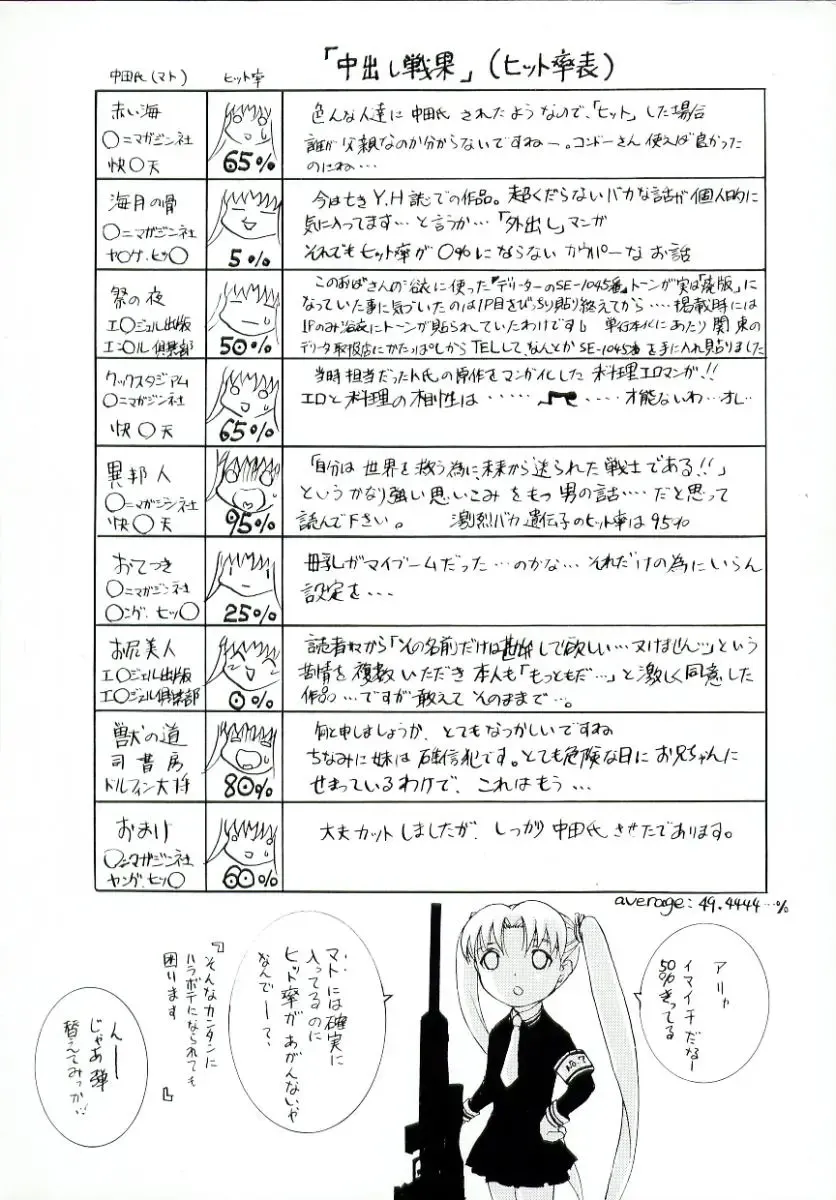 「中出し戦果」(ヒット率表)
中田氏(マト)
ヒット率
赤い海
〇ニマガジン社
快〇天
65%
色んな人達に中田氏されたようなので、「ヒット」した場合
誰が父親なのか分からないですねー。コンドーさん使えば良かった
のにね…
海月の骨
〇ニマガジン社
ヤ〇グ・ヒッ〇
5%
今は亡きY.H誌での作品。超くだらないバカな話が個人的に
気に入ってます…と言うか…「外出し」マンガ
それでもヒット率が0%にならないカウパーなお話
祭の夜
エ〇ジェル出版
エン〇ル倶楽部
50%
このおばさんの浴衣に使った『デリーターのSE-1045番』トーンが実は「廃版」に
なっていた事に気づいたのは1P目をびっちり貼り終えてから……掲載時には
1Pのみ浴衣にトーンが貼られていたわけです。単行本化にあたり関東の
デリータ取扱店にかたっぱしからTELして、なんとかSE-1045番を手に入れ貼りました
クックスタジアム
〇ニマガジン社
快〇天
65%
当時担当だったト氏の原作をマンガ化した料理エロマンガ!!
エロと料理の相性は…… ……才能ないわ…オレ…
異邦人
〇ニマガジン社
快〇天
95%
「自分は世界を救う為に、未来から送られた戦士である!!」
というかなり強い思いこみをもつ男の話……だと思って
読んで下さい。 激烈バカ遺伝子のヒット率は95%
おてつき
〇ニマガジン社
〇ング・ヒッ〇
25%
母乳がマイブームだった…のかな…それだけの為にいらん
設定を…
お尻美人
エ〇ジェル出版
エ〇ジェル倶楽部
0%
読者様から「その名前だけは勘弁して欲しい…ヌけません…」という
苦情を複数いただき本人も「もっともだ…」と激しく同意した
作品…ですが敢えてそのままで…。
獣の道
司書房
ドルフィン大将
80%
何と申しましょうか、とてもなつかしいですね
ちなみに妹は確信犯です。とても危険な日にお兄ちゃんに
せまっているわけで、これはもう…
おまけ
〇ニマガジン社
ヤング・ヒッ〇
60%
大丈カットしましたが、しっかり中田氏させたであります。
average: 49.4444…%
アリャ
イマイチだなー
50%きってる
マトには確実に
入ってるのに
ヒット率が
あがんないや
なんでーて、
『そんなカンタンに
ハラボテになられても
困ります』
んー
じゃあ弾
替えてみっか…